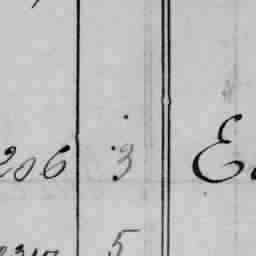 206 3 E
5